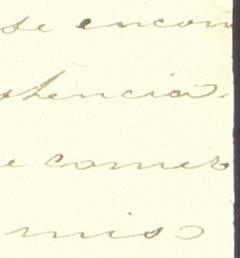 se encon
stencia.
e comer
mis